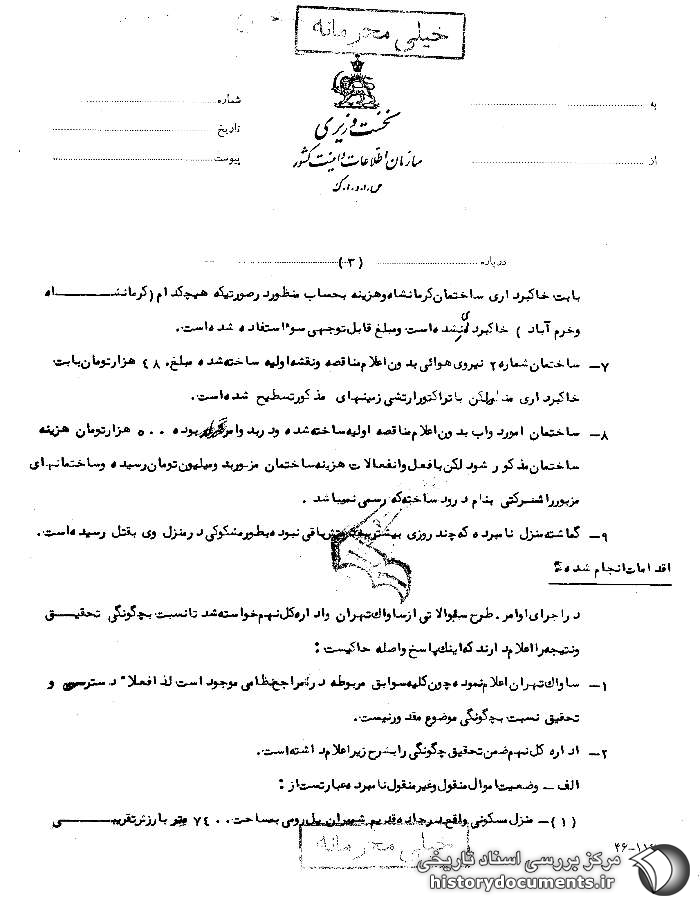 خیلی محرمانه
نخست وزیری
سازمان اطلاعات و امنیت کشور
س.ا.و.ا.ک
به
از
شماره
تاریخ
پیوست
درباره (۳)
بابت خاکبرداری ساختمان کرمانشاه وهزینه بحساب منظور درصورتیکه هیچکدام (کرمانشاه
وخرم آباد) خاکبرداری نشده است ومبلغ قابل توجهی سوء استفاده شده است.
۷- ساختمان شماره ۲ نیروی هوائی بدون اعلام مناقصه ونقشه اولیه ساخته شده مبلغ ۴۸۰ هزارتومان بابت
خاکبرداری لکن با تراکتور ارتشی زمینهای مذکور تسطیح شده است.
۸- ساختمان امور دواب بدون اعلام مناقصه اولیه ساخته شده ودر بدو امر بوده ۵۰۰ هزارتومان هزینه
ساختمان مذکور شود لکن بافعل وانفعالات هزینه ساختمان مزبور بدومیلیون تومان رسیده وساختمانهای
مزبور را شرکتی بنام درود ساخته که رسمی نمیباشد.
۹- گماشته منزل نامبرده که چند روزی بیشتر باقی نبوده بطور مشکوکی در منزل وی بقتل رسیده است.
اقدامات انجام شده:
در اجرای اوامر، طرح سئوالاتی از ساواک تهران واداره کل نهم خواسته شد تا نسبت بچگونگی تحقیق
ونتیجه را اعلام دارند که اینک پاسخ واصله حاکیست:
۱- ساواک تهران اعلام نموده چون کلیه سوابق مربوطه در مراجع نظامی موجود است لذا فعلا" دسترسی و
تحقیق نسبت بچگونگی موضوع مقدور نیست.
۲- اداره کل نهم ضمن تحقیق چگونگی را بشرح زیر اعلام داشته است.
الف - وضعیت اموال منقول وغیر منقول نامبرده عبارتست از:
(۱)- منزل مسکونی واقع در جاده قدیم شمیران پل رومی بمساحت ۷۴۰۰ متر با ارزش تقریبی
خیلی محرمانه
مرکز بررسی اسناد تاریخی
historydocuments.ir